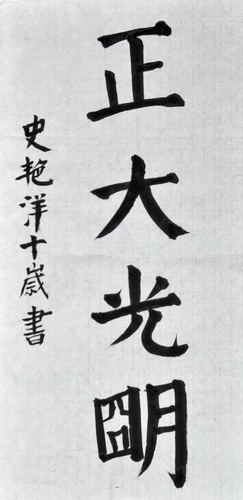 正大光明
史艳洋十歲書